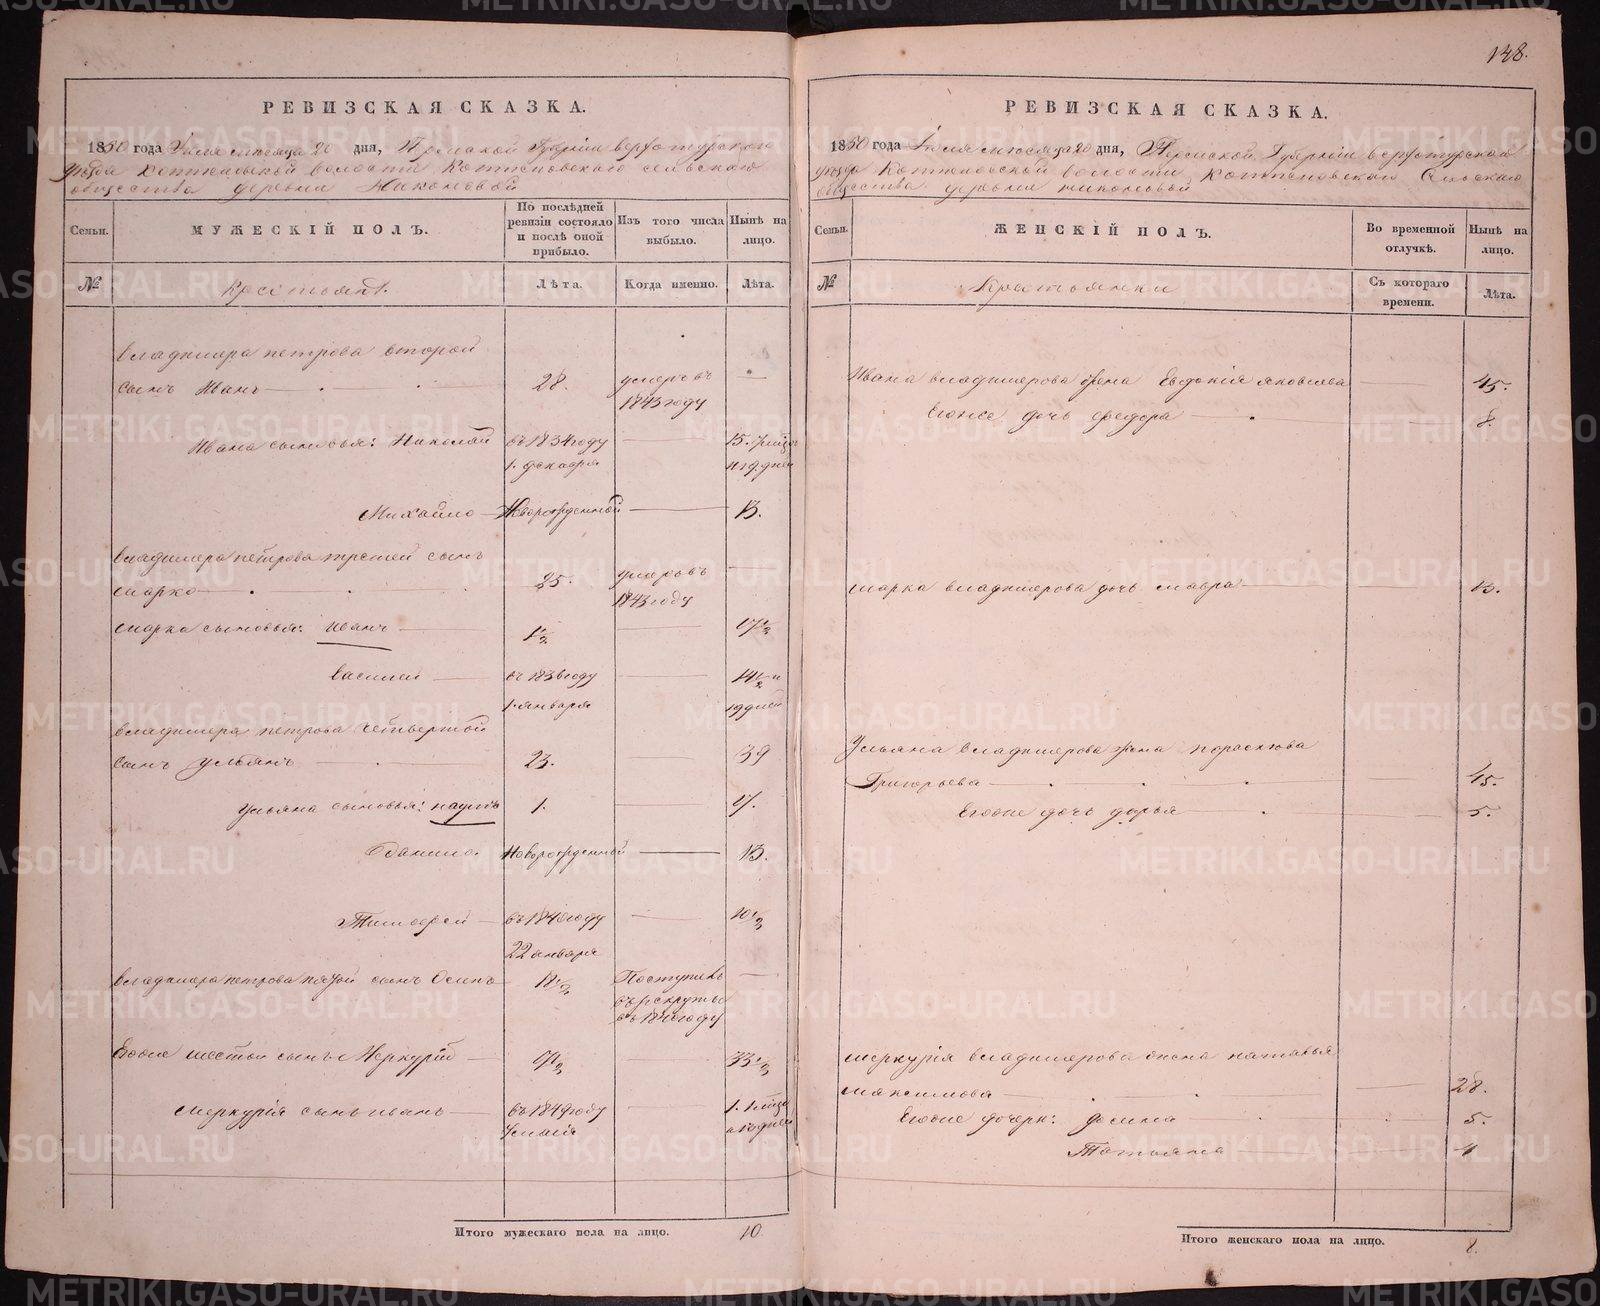 148.
РЕВИЗСКАЯ СКАЗКА.
1850 года Июля месяца 20 дня, Пермской Губернiи верхотурскаго
уѣзда волости сельскаго
общества деревни Никоновой
Семьи.
МУЖЕСКIЙ ПОЛЪ.
По послѣдней ревизiи состояло и послѣ оной прибыло.
Изъ того числа выбыло.
Нынѣ на лицо.
№
Крестьяне.
Лѣта.
Когда именно.
Лѣта.
владимера петрова второй
сынъ Иванъ 28. умеръ въ 1843 году
Ивана сыновья: Николай въ 1834 году 1. декабря 15.
Михайло Новорожденный 13.
владимера петрова третей сынъ
марко 25. умеръ въ 1843 году
марка сыновья: иванъ 1½ 17½
василей въ 1836 году 1. января 14½ и 19 дней
владимера петрова четвертой
сынъ ульянъ 23. 39
ульяна сыновья: наумъ 1. 17.
данило. Новорожденный 13.
Тимофей въ 1840 году 22 января 10½
владимера петрова пятой сынъ Осипъ Поступилъ въ рекруты въ 1840 году
Егоже шестой сынъ Меркурiй 33½
меркурiя сынъ иванъ въ 1849 году
Итого мужескаго пола на лицо. 10.
РЕВИЗСКАЯ СКАЗКА.
1850 года Июля месяца 20 дня, Пермской Губернiи верхотурскаго
волости Сельскаго
общества деревни никоновой
Семьи.
ЖЕНСКIЙ ПОЛЪ.
Во временной отлучкѣ.
Нынѣ на лицо.
№
Крестьянки
Съ котораго времени.
Лѣта.
Ивана владимерова жена Евдокiя яковлева 45.
Егоже дочь федора 8.
марка владимерова дочь мавра 13.
Ульяна владимерова жена
Григорьева 45.
Егоже дочь дарья 5.
меркурiя владимерова жена наталья
максимова 28.
Егоже дочери: 5.
Татьяна 1
Итого женскаго пола на лицо. 8.
METRIKI.GASO-URAL.RU